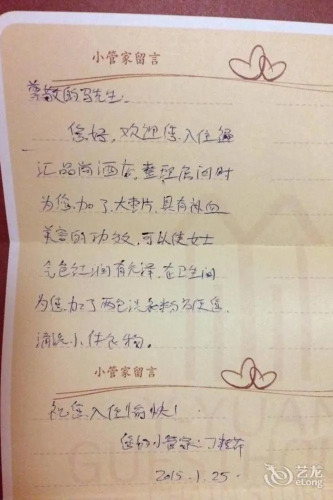 小管家留言
尊敬的马先生.
您好,欢迎您入住遍
汇品尚酒店,整理房间时
为您加了大枣片,具有补血
美容的功效,可以使女士
气色红润有光泽,在卫生间
为您加了两包洗衣粉方便您
清洗小件衣物。
小管家留言
祝您入住愉快!
您的小管家:丁
2015.1.25.
艺龙
eLong